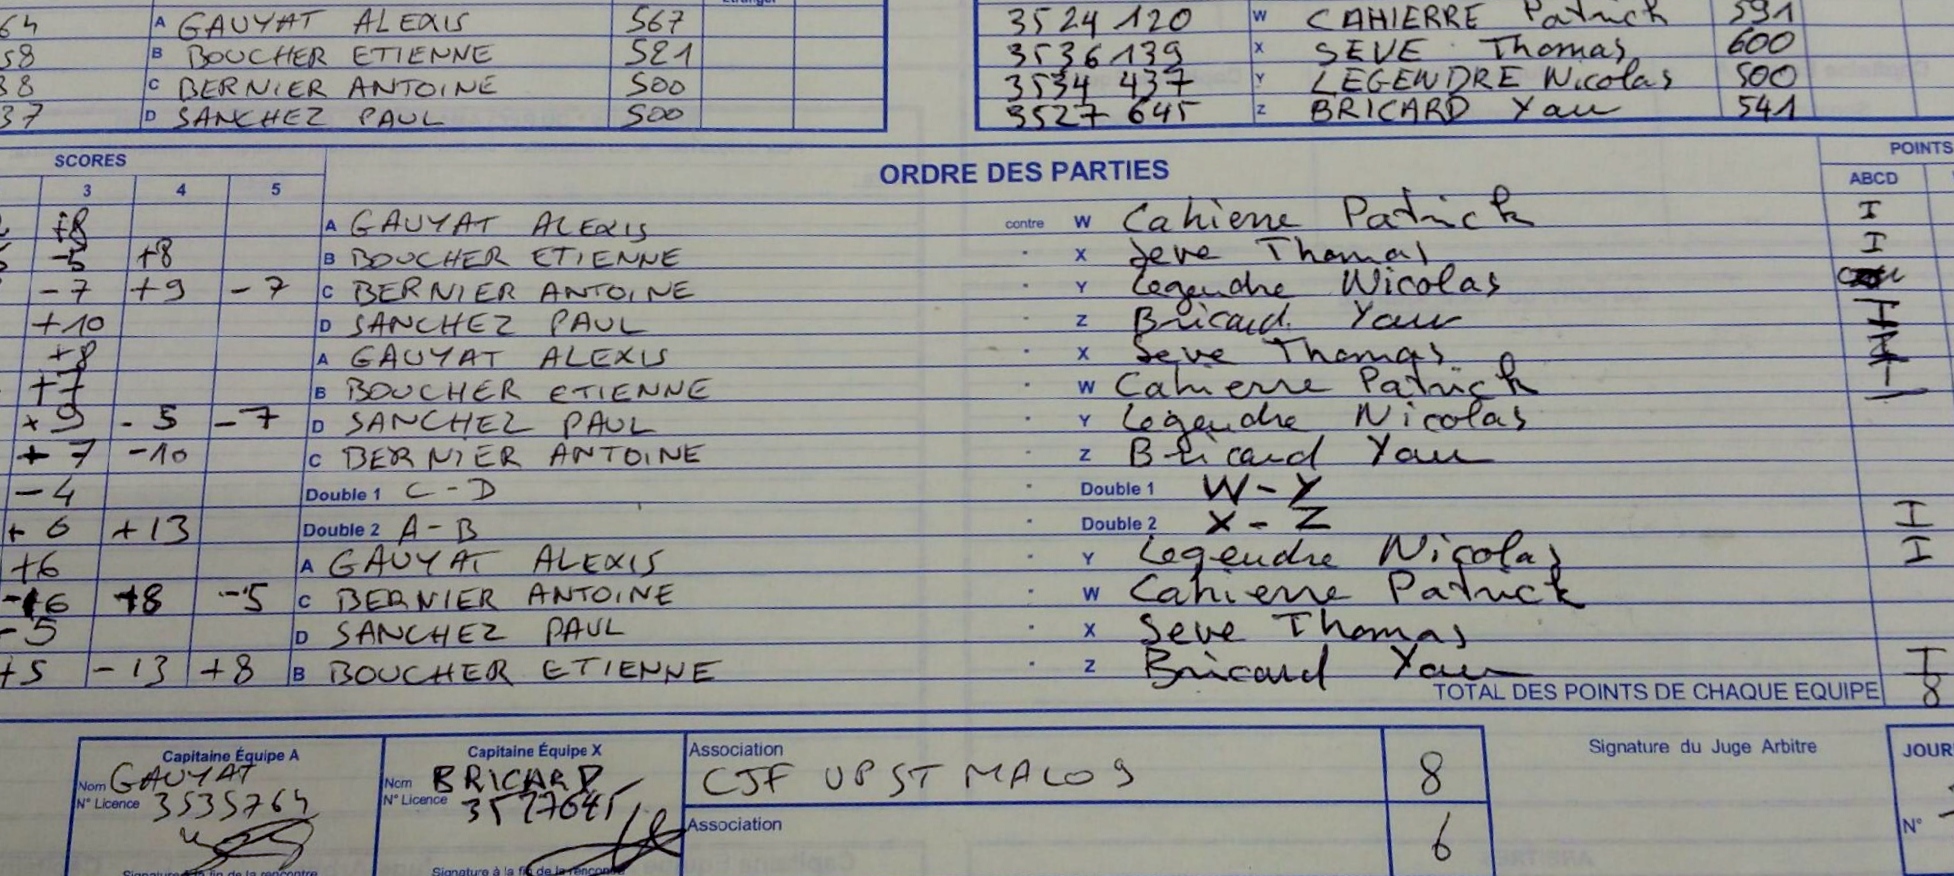 64 A GAUYAT ALEXIS 567 3524 120 W CAHIERRE Patrick 591
58 B BOUCHER ETIENNE 521 3536 139 X SEVE Thomas 600
38 C BERNIER ANTOINE 500 3534 437 Y LEGENDRE Nicolas 500
37 D SANCHEZ PAUL 500 3527 645 Z BRICARD Yau 541
SCORES ORDRE DES PARTIES POINTS
3 4 5 ABCD
+8 A GAUYAT ALEXIS contre W Cahierre Patrick I
-5 +8 B BOUCHER ETIENNE X Seve Thomas I
-7 +9 -7 C BERNIER ANTOINE Y Legendre Nicolas
+10 D SANCHEZ PAUL Z Bricard Yau I
+8 A GAUYAT ALEXIS X Seve Thomas
+7 B BOUCHER ETIENNE W Cahierre Patrick
+9 -5 -7 D SANCHEZ PAUL Y Legendre Nicolas
+7 -10 C BERNIER ANTOINE Z Bricard Yau
-4 Double 1 C-D Double 1 W-Y
+6 +13 Double 2 A-B Double 2 X-Z I
+6 A GAUYAT ALEXIS Y Legendre Nicolas I
+8 -5 C BERNIER ANTOINE W Cahierre Patrick
-5 D SANCHEZ PAUL X Seve Thomas
+5 -13 +8 B BOUCHER ETIENNE Z Bricard Yau I
TOTAL DES POINTS DE CHAQUE EQUIPE 8
Capitaine Équipe A Capitaine Équipe X Association Signature du Juge Arbitre JOUR
Nom GAUYAT Nom BRICARD CJF UP ST MALO 9 8
N° Licence 3535764 N° Licence 3527645
Association 6 N°
Signature à la fin de la rencontre Signature à la fin de la rencontre